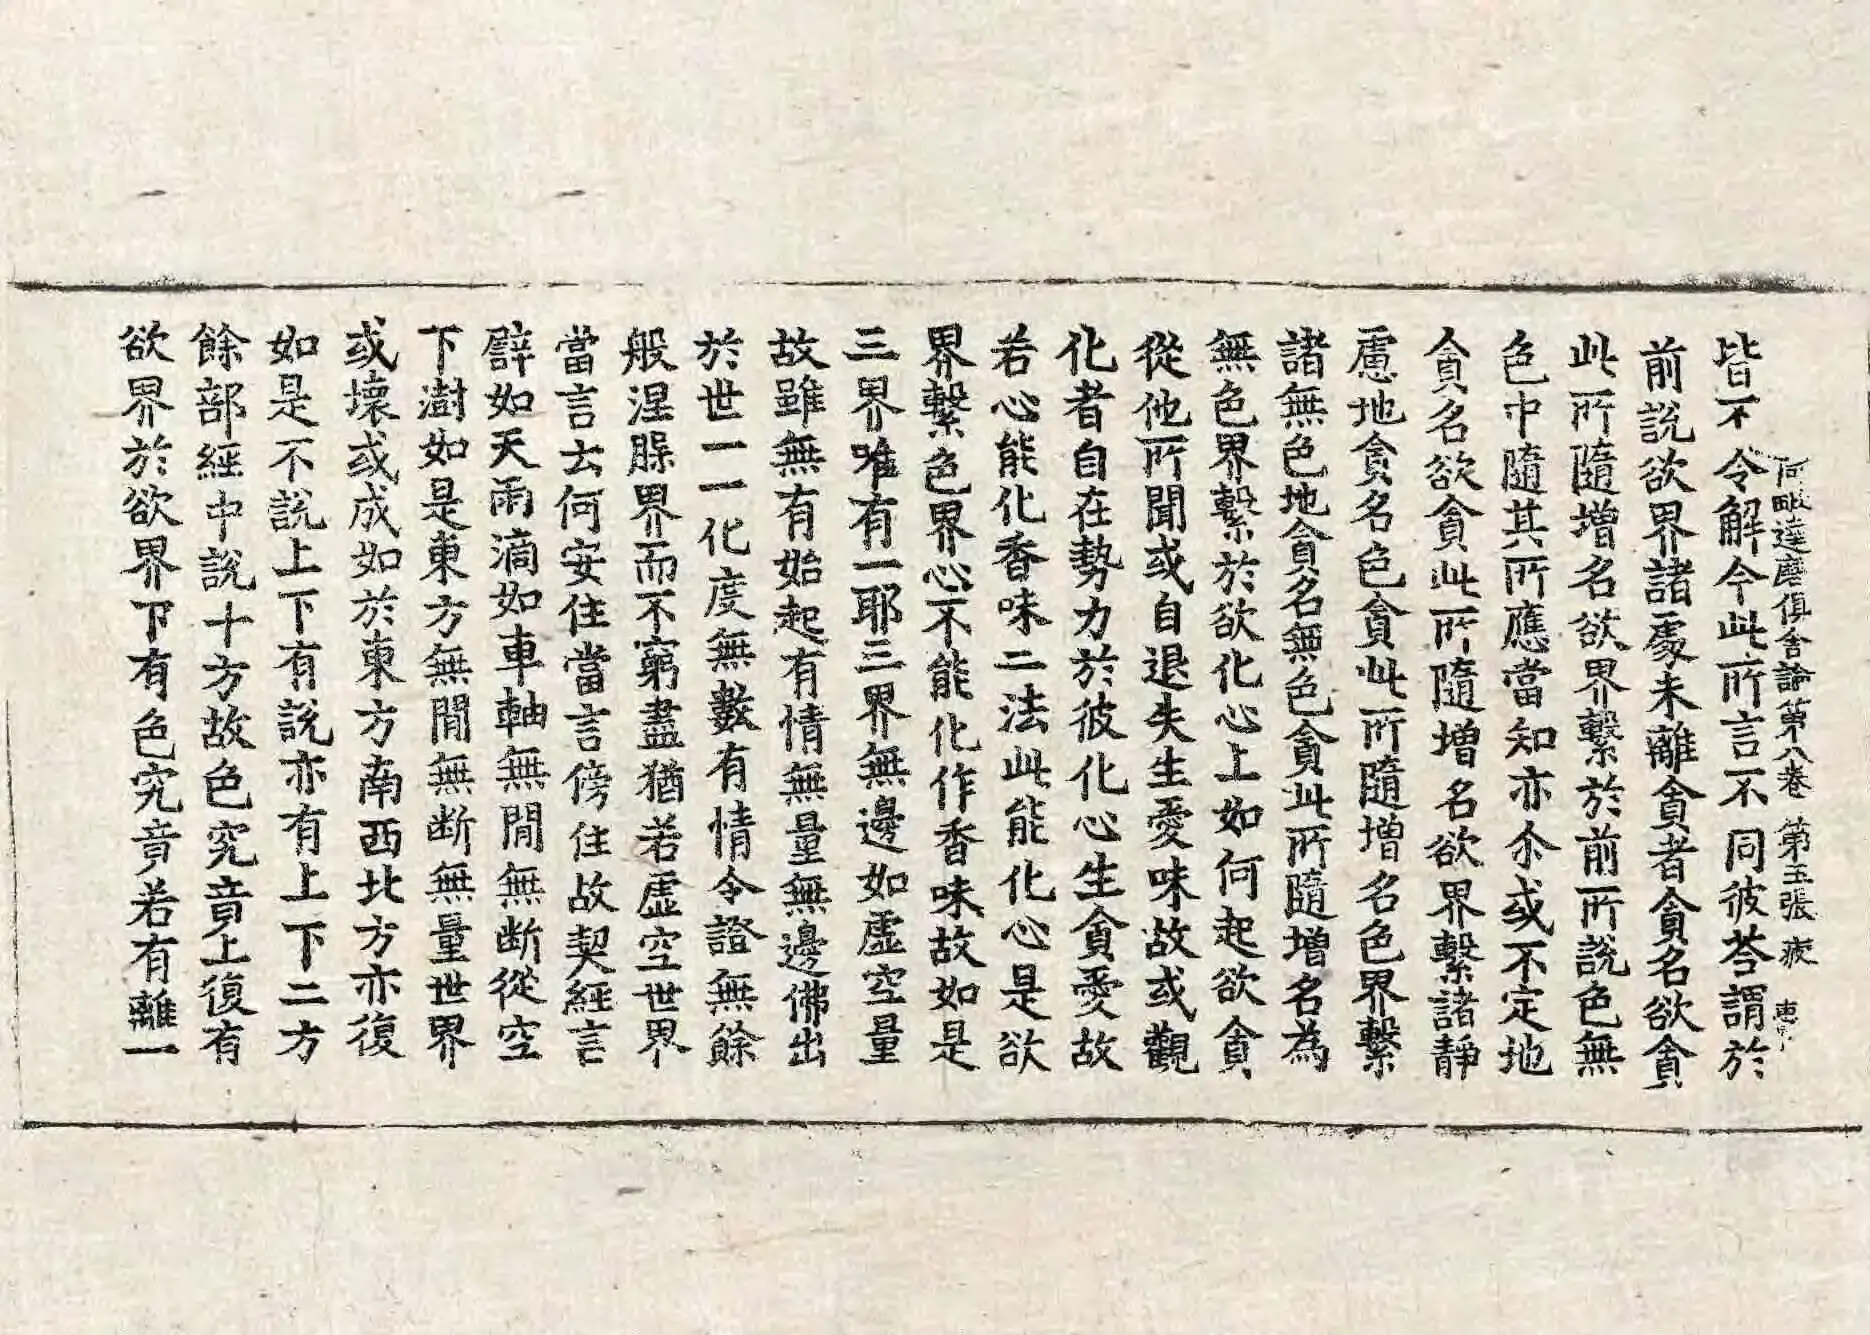 阿毗達磨俱舍論第八卷 第五張 疲
皆不令解今此所言不同彼荅謂於
前說欲界諸處未離貪者貪名欲貪
此所隨增名欲界繫於前所說色無
色中隨其所應當知亦尒或不定地
貪名欲貪此所隨增名欲界繫諸靜
慮地貪名色貪此所隨增名色界繫
諸無色地貪名無色貪此所隨增名為
無色界繫於欲化心上如何起欲貪
從他所聞或自退失生愛味故或觀
化者自在勢力於彼化心生貪愛故
若心能化香味二法此能化心是欲
界繫色界心不能化作香味故如是
三界唯有一耶三界無邊如虛空量
故雖無有始起有情無量無邊佛出
於世一一化度無數有情令證無餘
般涅脲界而不窮盡猶若虛空世界
當言云何安住當言傍住故契經言
譬如天雨滴如車軸無間無断從空
下澍如是東方無間無断無量世界
或壞或成如於東方南西北方亦復
如是不說上下有說亦有上下二方
餘部經中說十方故色究竟上復有
欲界於欲界下有色究竟若有離一